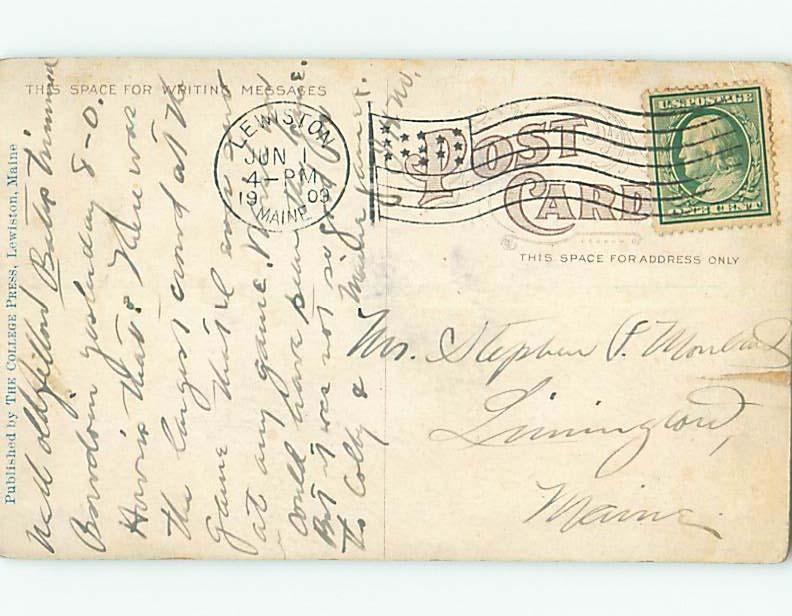 THIS SPACE FOR WRITING MESSAGES
Published by THE COLLEGE PRESS, Lewiston, Maine
Well old fellow Bates trimmed
Bowdoin yesterday 8-0.
How's that? There was
the largest crowd at the
game that I ever saw
at any game.
could have been
But it was not so
to Colby &
LEWISTON
JUN 1
4-PM
1909
MAINE
POST
CARD
THIS SPACE FOR ADDRESS ONLY
U.S. POSTAGE
Mr. Stephen P.
Limington,
Maine.